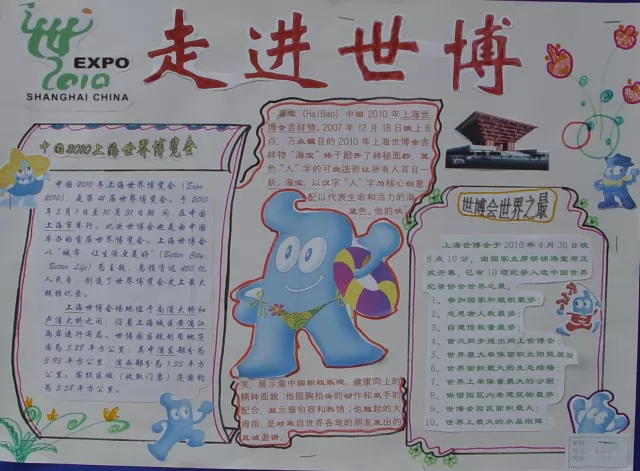 走进世博
EXPO
2010
SHANGHAI CHINA
中国2010上海世界博览会
中国2010年上海世界博览会(Expo
2010),是第41届世界博览会。于2010
年5月1日至10月31日期间,在中国
上海市举行。此次世博会也是由中国
举办的首届世界博览会。上海世博会
以“城市,让生活更美好”(Better City,
Better Life)为主题,总投资达450亿
人民币,创造了世界博览会史上最大
规模记录。
上海世博会场地位于南浦大桥和
卢浦大桥之间,沿着上海城区黄浦江
两岸进行布局。世博园区规划用地范
围为5.28平方公里,其中浦东部分为
3.93平方公里,浦西部分为1.35平方
公里。围栏区域(收取门票)范围约
为3.58平方公里。
海宝(HaiBao)中国2010年上海世
博会吉祥物。2007年12月18日晚上8
点,万众瞩目的2010年上海世博会吉
祥物“海宝”终于掀开了神秘面纱,蓝
色“人”字的可爱造型让所有人耳目一
新。海宝,以汉字“人”字为核心创意,
配以代表生命和活力的海
蓝色。他的欢
美,展示着中国积极乐观、健康向上的
精神面貌;他挺胸抬头的动作和双手的
配合,显示着包容和热情;他翘起的大
拇指,是对来自世界各地的朋友发出的
真诚邀请。
世博会世界之最
上海世博会于2010年4月30日晚
8点10分,由国家主席胡锦涛宣布正
式开幕,已有10项纪录入选中国世界
纪录协会世界之最。
1、参加国家和组织最多;
2、志愿者人数最多;
3、自建馆数量最多;
4、首次同步推出网上世博会;
5、世界最大单体面积太阳能屋面
6、世界面积最大的生态绿墙;
7、世界上单体量最大的公厕;
8、保留园区内老建筑物最多
9、世博会园区面积最大;
10、世界上最大的水晶矩阵。